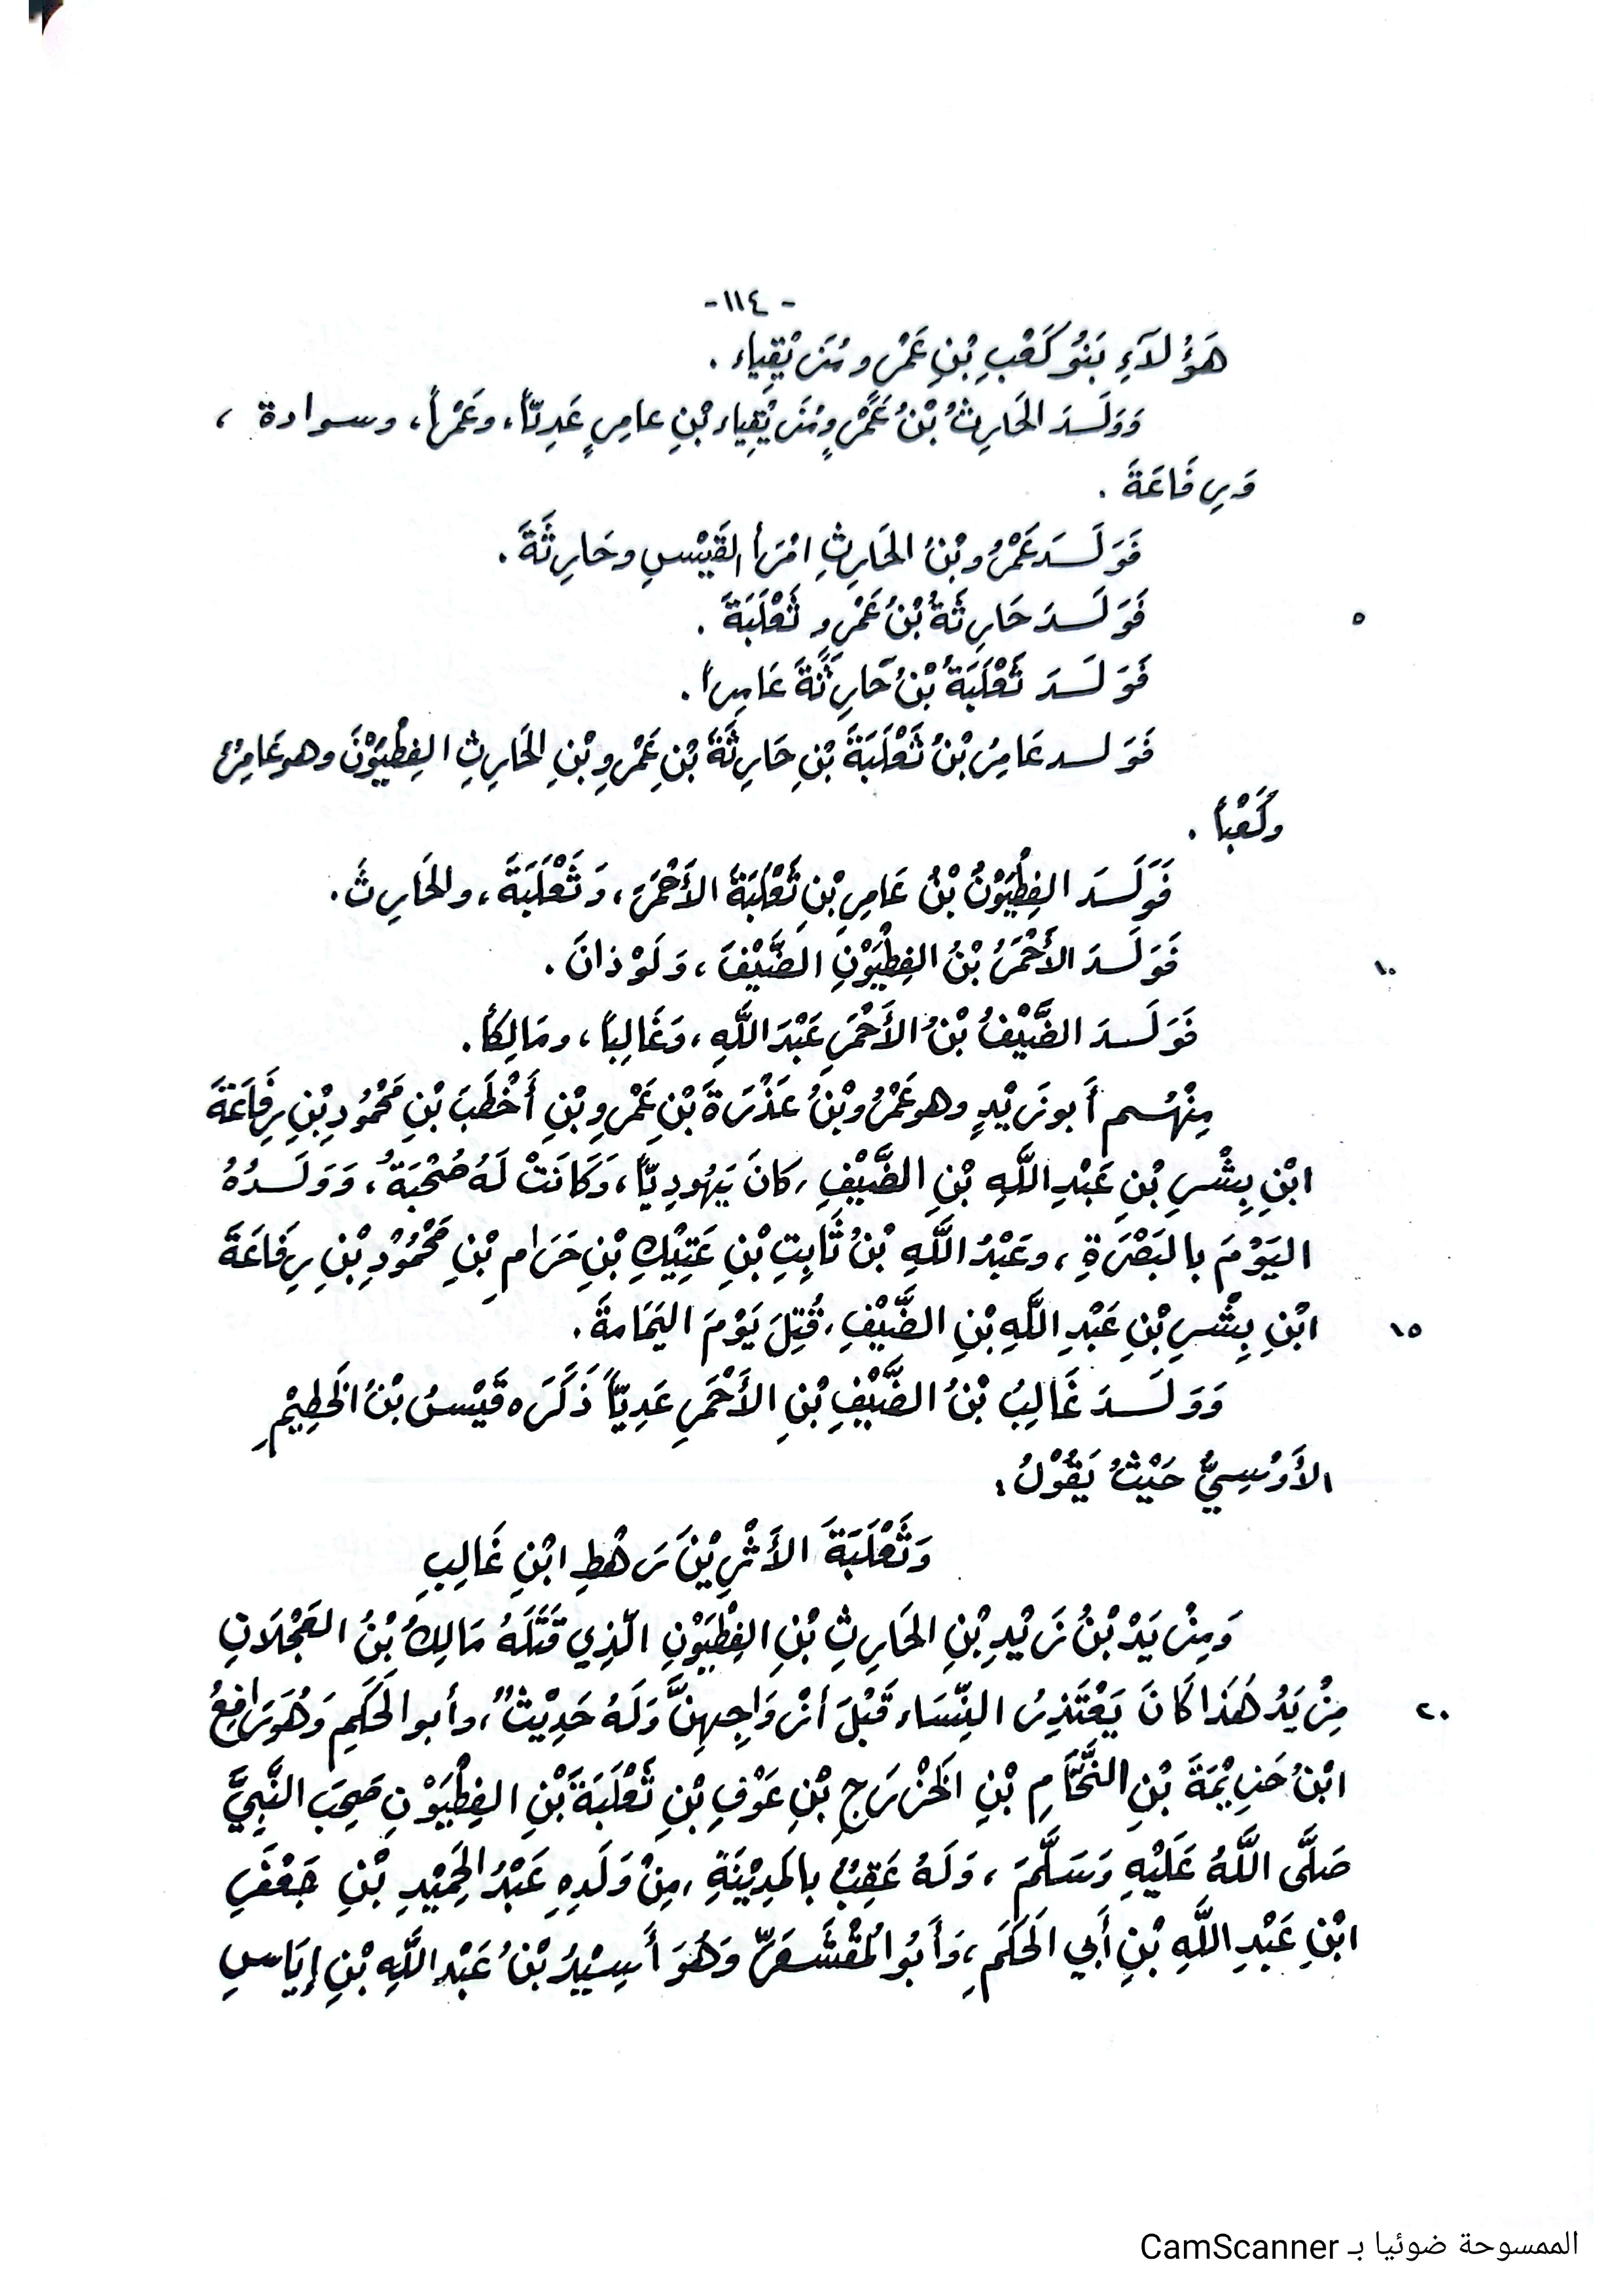 - ١١٤ -
هَؤُلاَءِ بَنُو كَعْبِ بْنِ عَمْرٍو مُزَيْقِيَاء .
وَوَلَـدَ الحَارِثُ بْنُ عَمْرٍو مُزَيْقِيَاء بْنِ عامِرٍ عَدِيّاً، وعَمْراً، وسوادة ،
وَرِفَاعَةَ .
فَوَلَـدَ عَمْرُو بْنُ الحَارِثِ امْرَأَ القَيْسِ وحَارِثَةَ .
٥ فَوَلَـدَ حَارِثَةُ بْنُ عَمْرٍو ثَعْلَبَةَ .
فَوَلَـدَ ثَعْلَبَةُ بْنُ حَارِثَةَ عَامِراً .
فَوَلـد عَامِرُ بْنُ ثَعْلَبَةَ بْنِ حَارِثَةَ بْنِ عَمْرِو بْنِ الحَارِثِ الفِطْيَوْنَ وهو عَامِرُ
وكَعْباً .
فَوَلَـدَ الفِطْيَوْنُ بْنُ عَامِرِ بْنِ ثَعْلَبَةَ الأَحْمَرَ، وَثَعْلَبَةَ، والحَارِثَ .
١٠ فَوَلَـدَ الأَحْمَرُ بْنُ الفِطْيَوْنِ الضَّيْفَ، وَلَوْذانَ .
فَوَلَـدَ الضَّيْفُ بْنُ الأَحْمَرِ عَبْدَ اللَّهِ، وَغَالِباً، ومَالِكاً .
مِنْهُـم أَبو زَيْدٍ وهو عَمْرُو بْنُ عَذْرَةَ بْنِ عَمْرِو بْنِ أَخْطَبَ بْنِ مَحْمُودِ بْنِ رِفَاعَةَ
ابْنِ بِشْرِ بْنِ عَبْدِ اللَّهِ بْنِ الضَّيْفِ، كانَ يَهُودِيّاً، وَكَانَتْ لَهُ صُحْبَةٌ، وَوَلَـدُهُ
اليَوْمَ بالبَصْرَةِ ، وعَبْدُ اللَّهِ بْنُ ثَابِتِ بْنِ عَتِيْكِ بْنِ حَرَامِ بْنِ مَحْمُوْدِ بْنِ رِفَاعَةَ
١٥ ابْنِ بِشْرِ بْنِ عَبْدِ اللَّهِ بْنِ الضَّيْفِ، قُتِلَ يَوْمَ اليَمَامَةَ .
وَوَلَـدَ غَالِبُ بْنُ الضَّيْفِ بْنِ الأَحْمَرِ عَدِيّاً ذَكَرَه قَيْسُ بْنُ الخَطِيْمِ
الأَوْسِيُّ حَيْثُ يَقُوْلُ :
وَثَعْلَبَةَ الأَثْرِيْنَ رَهْطِ ابْنِ غَالِبِ
وَمِزْيَدُ بْنُ زَيْدِ بْنِ الحَارِثِ بْنِ الفِطْيَوْنِ الّذِي قَتَلَهُ مَالِكُ بْنُ العَجْلَانِ
٢٠ مِزْيَدُ هَذَا كَانَ يَعْتَذِرُ النِّسَاء قَبْلَ أزْوَاجِهِنَّ وَلَهُ حَدِيْثٌ، وأبو الحَكَمِ وَهُوَ رَافِعُ
ابْنُ خُزَيْمَةَ بْنِ النَّحَّامِ بْنِ الخَزْرَجِ بْنِ عَوْفِ بْنِ ثَعْلَبَةَ بْنِ الفِطْيَوْنِ صَحِبَ النَّبِيَّ
صَلَّى اللَّهُ عَلَيْهِ وَسَلَّمَ ، وَلَهُ عَقِبٌ بالمَدِيْنَةِ، مِنْ وَلَدِهِ عَبْدُ الحَمِيْدِ بْنِ جَعْفَرِ
ابْنِ عَبْدِ اللَّهِ بْنِ أَبي الحَكَمِ، وَأَبُو المُقْشَعَرِّ وَهُوَ أَسِيْدُ بْنُ عَبْدِ اللَّهِ بْنِ إِيَاسِ
الممسوحة ضوئيا بـ CamScanner